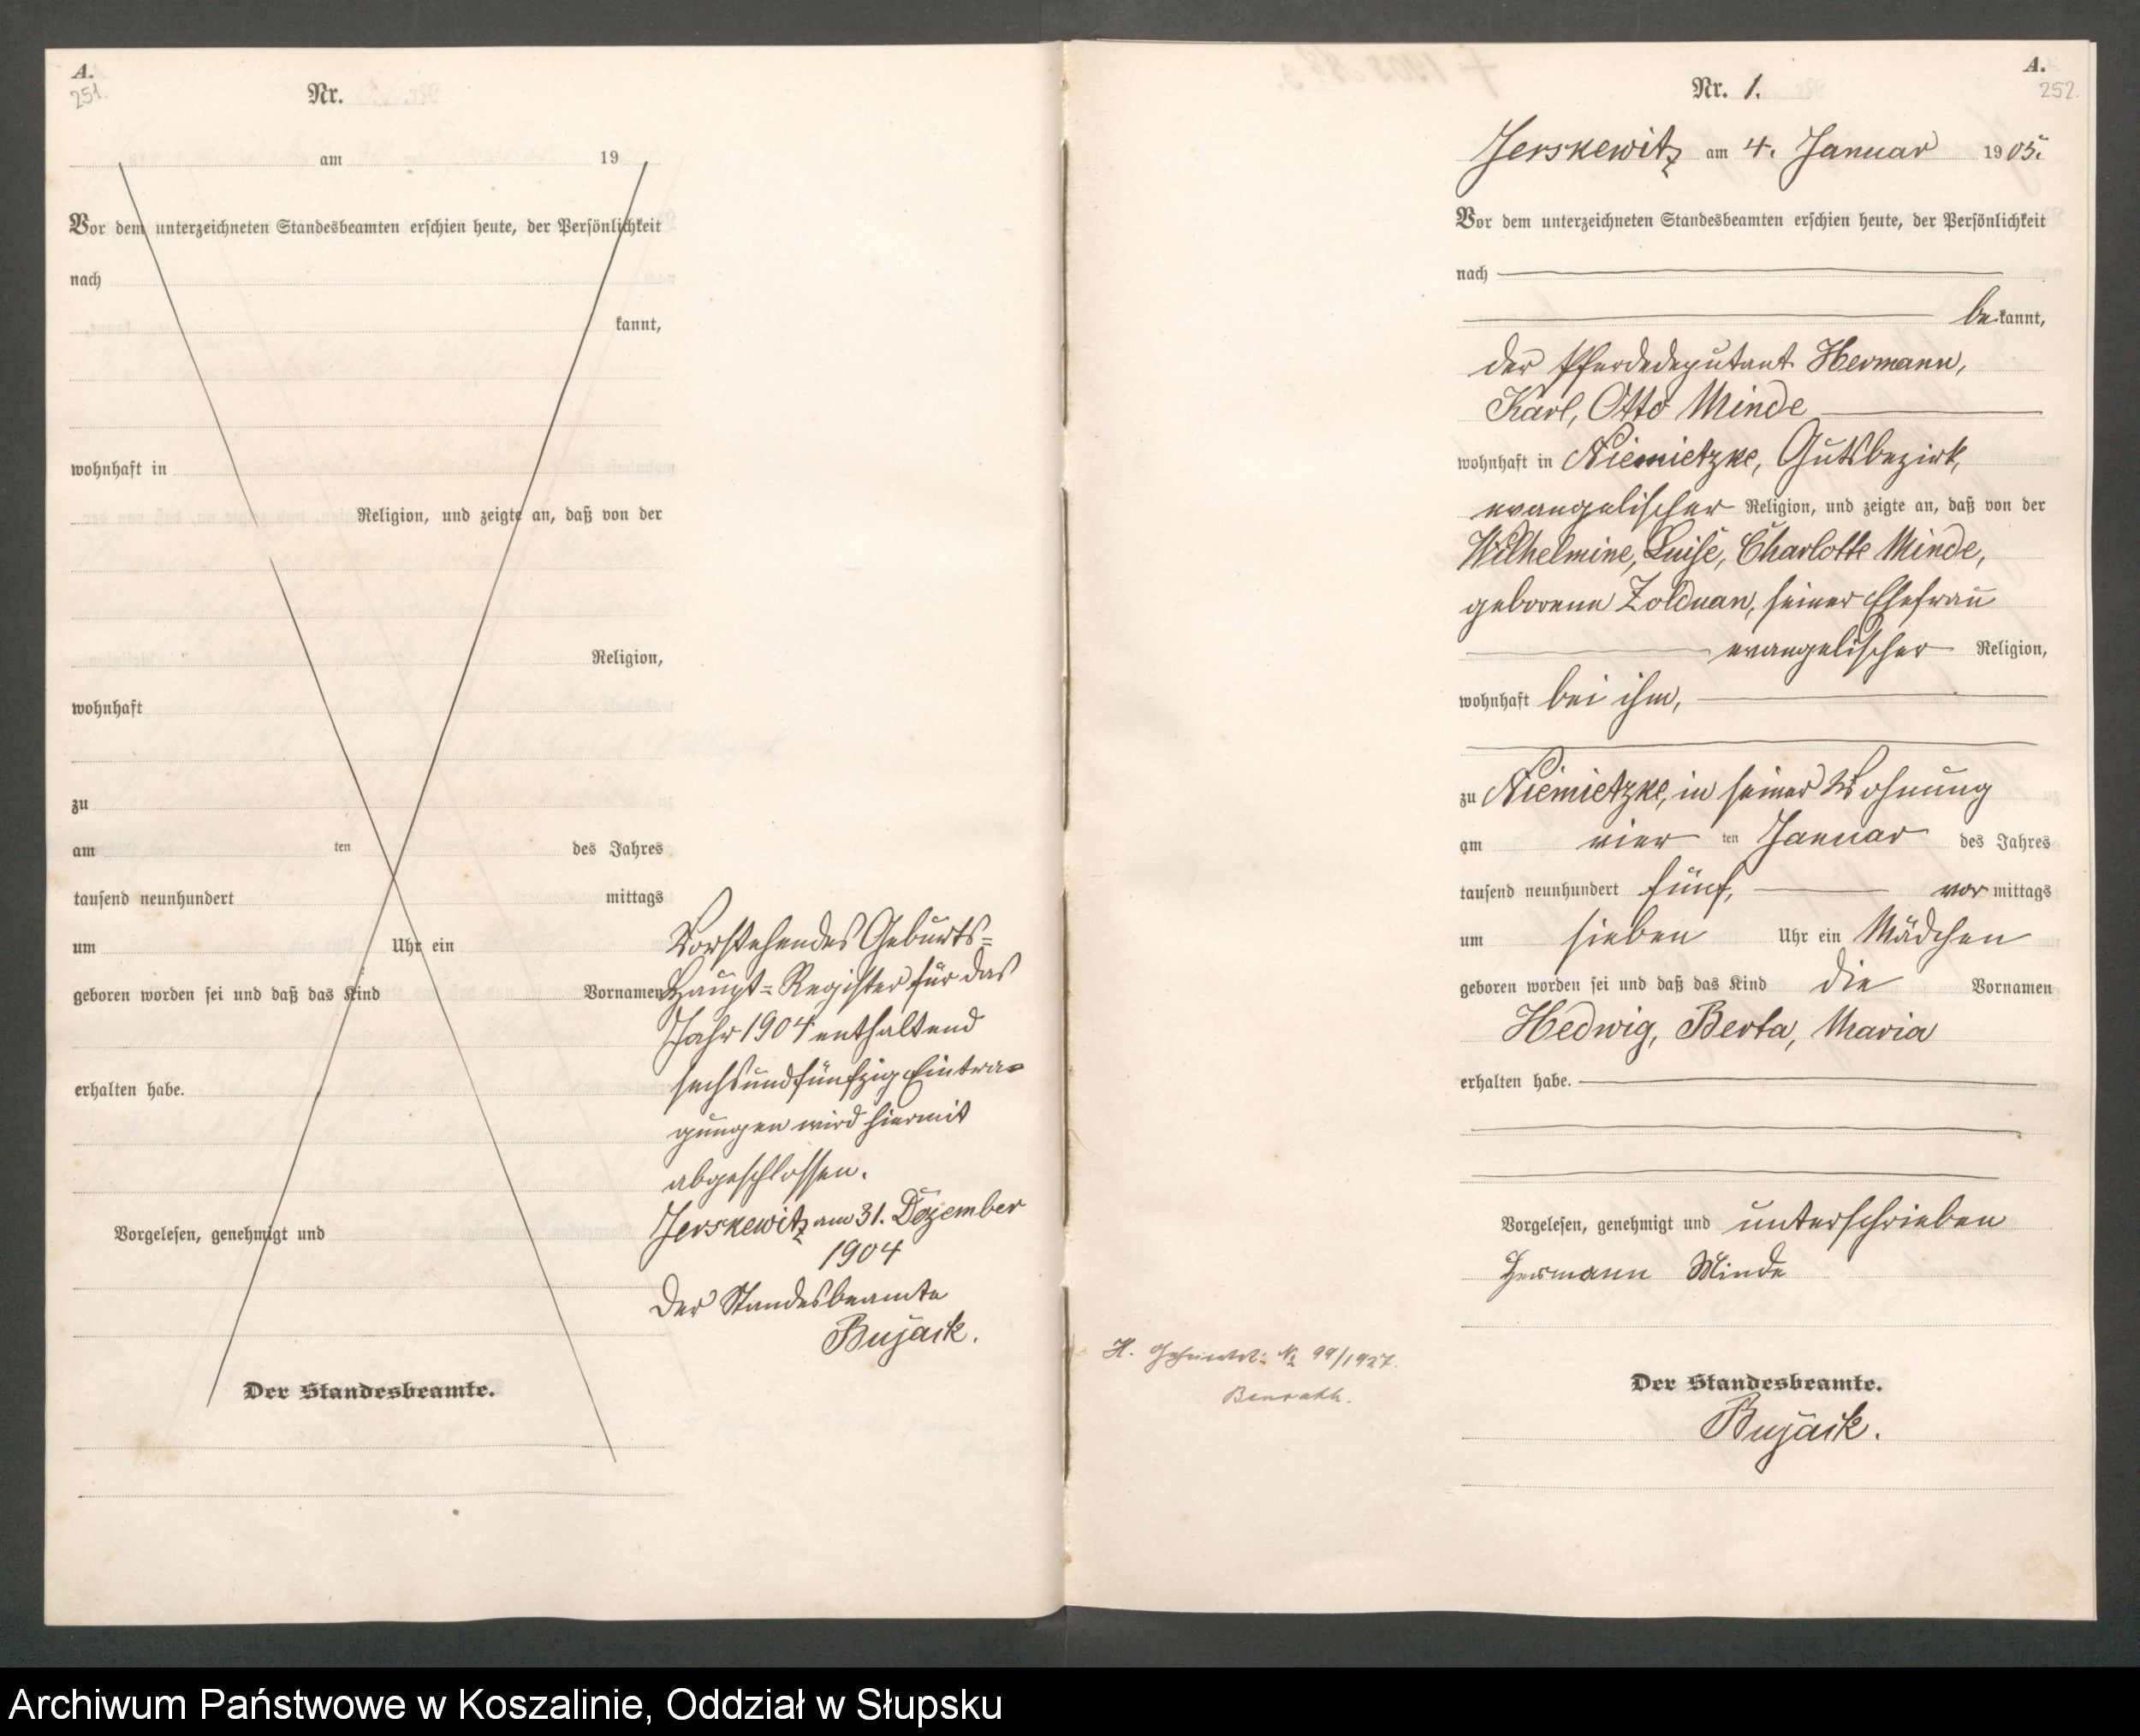 A.
251.
Nr.
am 19
Vor dem unterzeichneten Standesbeamten erschien heute, der Persönlichkeit
nach
kannt,
wohnhaft in
Religion, und zeigte an, daß von der
Religion,
wohnhaft
zu
am ten des Jahres
tausend neunhundert mittags
um Uhr ein
geboren worden sei und daß das Kind Vornamen
erhalten habe.
Vorgelesen, genehmigt und
Der Standesbeamte.
Vorstehendes Geburts=
Haupt=Register für das
Jahr 1904 enthaltend
sechsundfünfzig Eintra=
gungen wird hiermit
abgeschlossen.
Jerskewitz am 31. Dezember
1904
Der Standesbeamte
Bujack.
A.
252.
Nr. 1.
Jerskewitz am 4. Januar 1905.
Vor dem unterzeichneten Standesbeamten erschien heute, der Persönlichkeit
nach
bekannt,
der Pferdedeputant Hermann,
Karl, Otto Minde
wohnhaft in Niemietzke, Gutsbezirk,
evangelischer Religion, und zeigte an, daß von der
Wilhelmine, Luise, Charlotte Minde,
geborene Zolduan, seiner Ehefrau
evangelischer Religion,
wohnhaft bei ihm,
zu Niemietzke, in seiner Wohnung
am vier ten Januar des Jahres
tausend neunhundert fünf, vor mittags
um sieben Uhr ein Mädchen
geboren worden sei und daß das Kind die Vornamen
Hedwig, Berta, Maria
erhalten habe.
Vorgelesen, genehmigt und unterschrieben
Hermann Minde
Der Standesbeamte.
Bujack.
H. № 99/1927.
Benrath.
Archiwum Państwowe w Koszalinie, Oddział w Słupsku